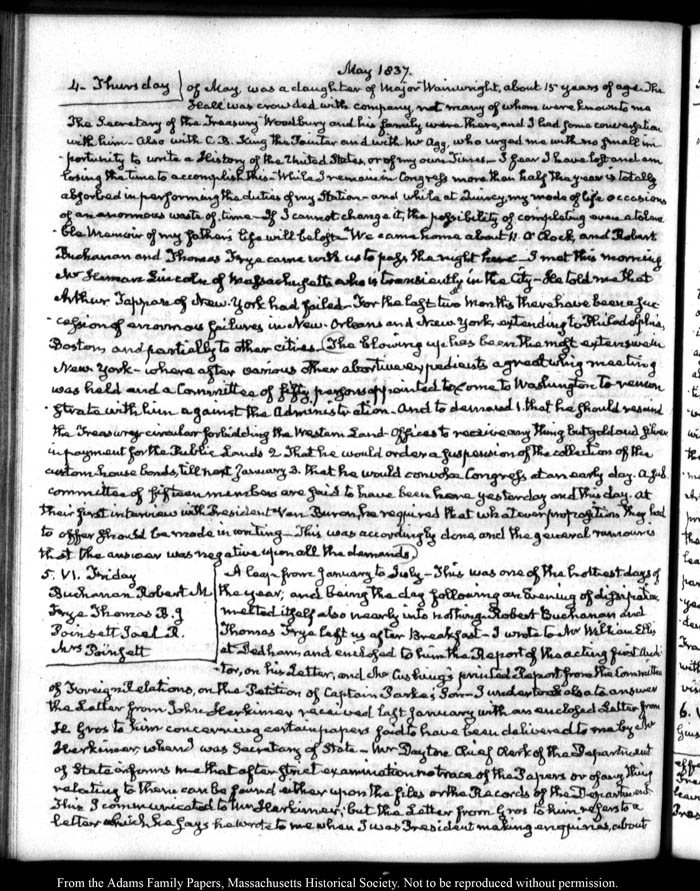 May 1837.
4. Thursday
of May, was a daughter of Major Wainwright, about 15 years of age. The
Hall was crowded with company, not many of whom were known to me
The Secretary of the Treasury Woodbury and his family were there, and I had some conversation
with him. Also with C. B. King the Painter and with Mr Agg, who urged me with no small im-
-portunity to write a History of the United States, or of my own Times. I fear I have lost and am
losing the time to accomplish this. While I remain in Congress more than half the year is totally
absorbed in performing the duties of my Station and while at Quincy, my mode of life occasions
of an enormous waste of time. If I cannot change it, the possibility of completing even a tolera-
-ble Memoir of my father's life will be lost. We came home about 11. O'Clock, and Robert
Buchanan and Thomas Frye came with us to pass the night here. I met this morning
Mr Heman Lincoln of Massachusetts who is transiently in the City. He told me that
Arthur Tappan of New-York had failed. For the last two months there have been a suc-
-cession of enormous failures in New-Orleans and New York, extending to Philadelphia,
Boston, and partially to other cities. The blowing up has been the most extensive in
New York - where after various other abortive expedients a great whig meeting
was held and a Committee of fifty persons appointed to come to Washington to remon
-strate with him against the Administration. And to demand 1. that he should rescind
the Treasury circular forbidding the Western Land Offices to receive any thing but gold and silver
in payment for the Public Lands 2. That he would order a suspension of the collection of the
custom house bonds, till next January 3. that he would convoke Congress at an early day. A sub
committee of fifteen members are said to have been here yesterday and this day. At
their first interview with President Van Buren, he required that whatever proposition they had
to offer should be made in writing. This was accordingly done, and the general rumour is
that the answer was negative upon all the demands.
5. VI. Friday
Buchanan Robert M
Frye Thomas B. J
Poinsett Joel R.
Mrs Poinsett
A leap from January to July. This was one of the hottest days of
the year; and being the day following an Evening of dissipation
melted itself also nearly into nothing. Robert Buchanan and
Thomas Frye left us after Breakfast. I wrote to Mr William Ellis
at Dedham, and enclosed to him the Report of the acting first Audi-
-tor, on his Letter, and Mr Cushing's printed Report from the Committee
of Foreign Relations, on the Petition of Captain Parke's Son. I undertook also to answer
the Letter from John Herkimer received last January with an enclosed Letter from
Gros to him concerning certain papers said to have been delivered to me by Mr
Herkimer, when I was Secretary of State. Mr Dayton Chief Clerk of the Department
of State informs me that after strict examination no trace of the Papers or of any thing
relating to them can be found either upon the files or the Records of the Department
This I communicated to Mr Herkimer; but the Letter from Gros to him refers to a
letter which he says he wrote to me when I was President making enquiries, about
From the Adams Family Papers, Massachusetts Historical Society. Not to be reproduced without permission.